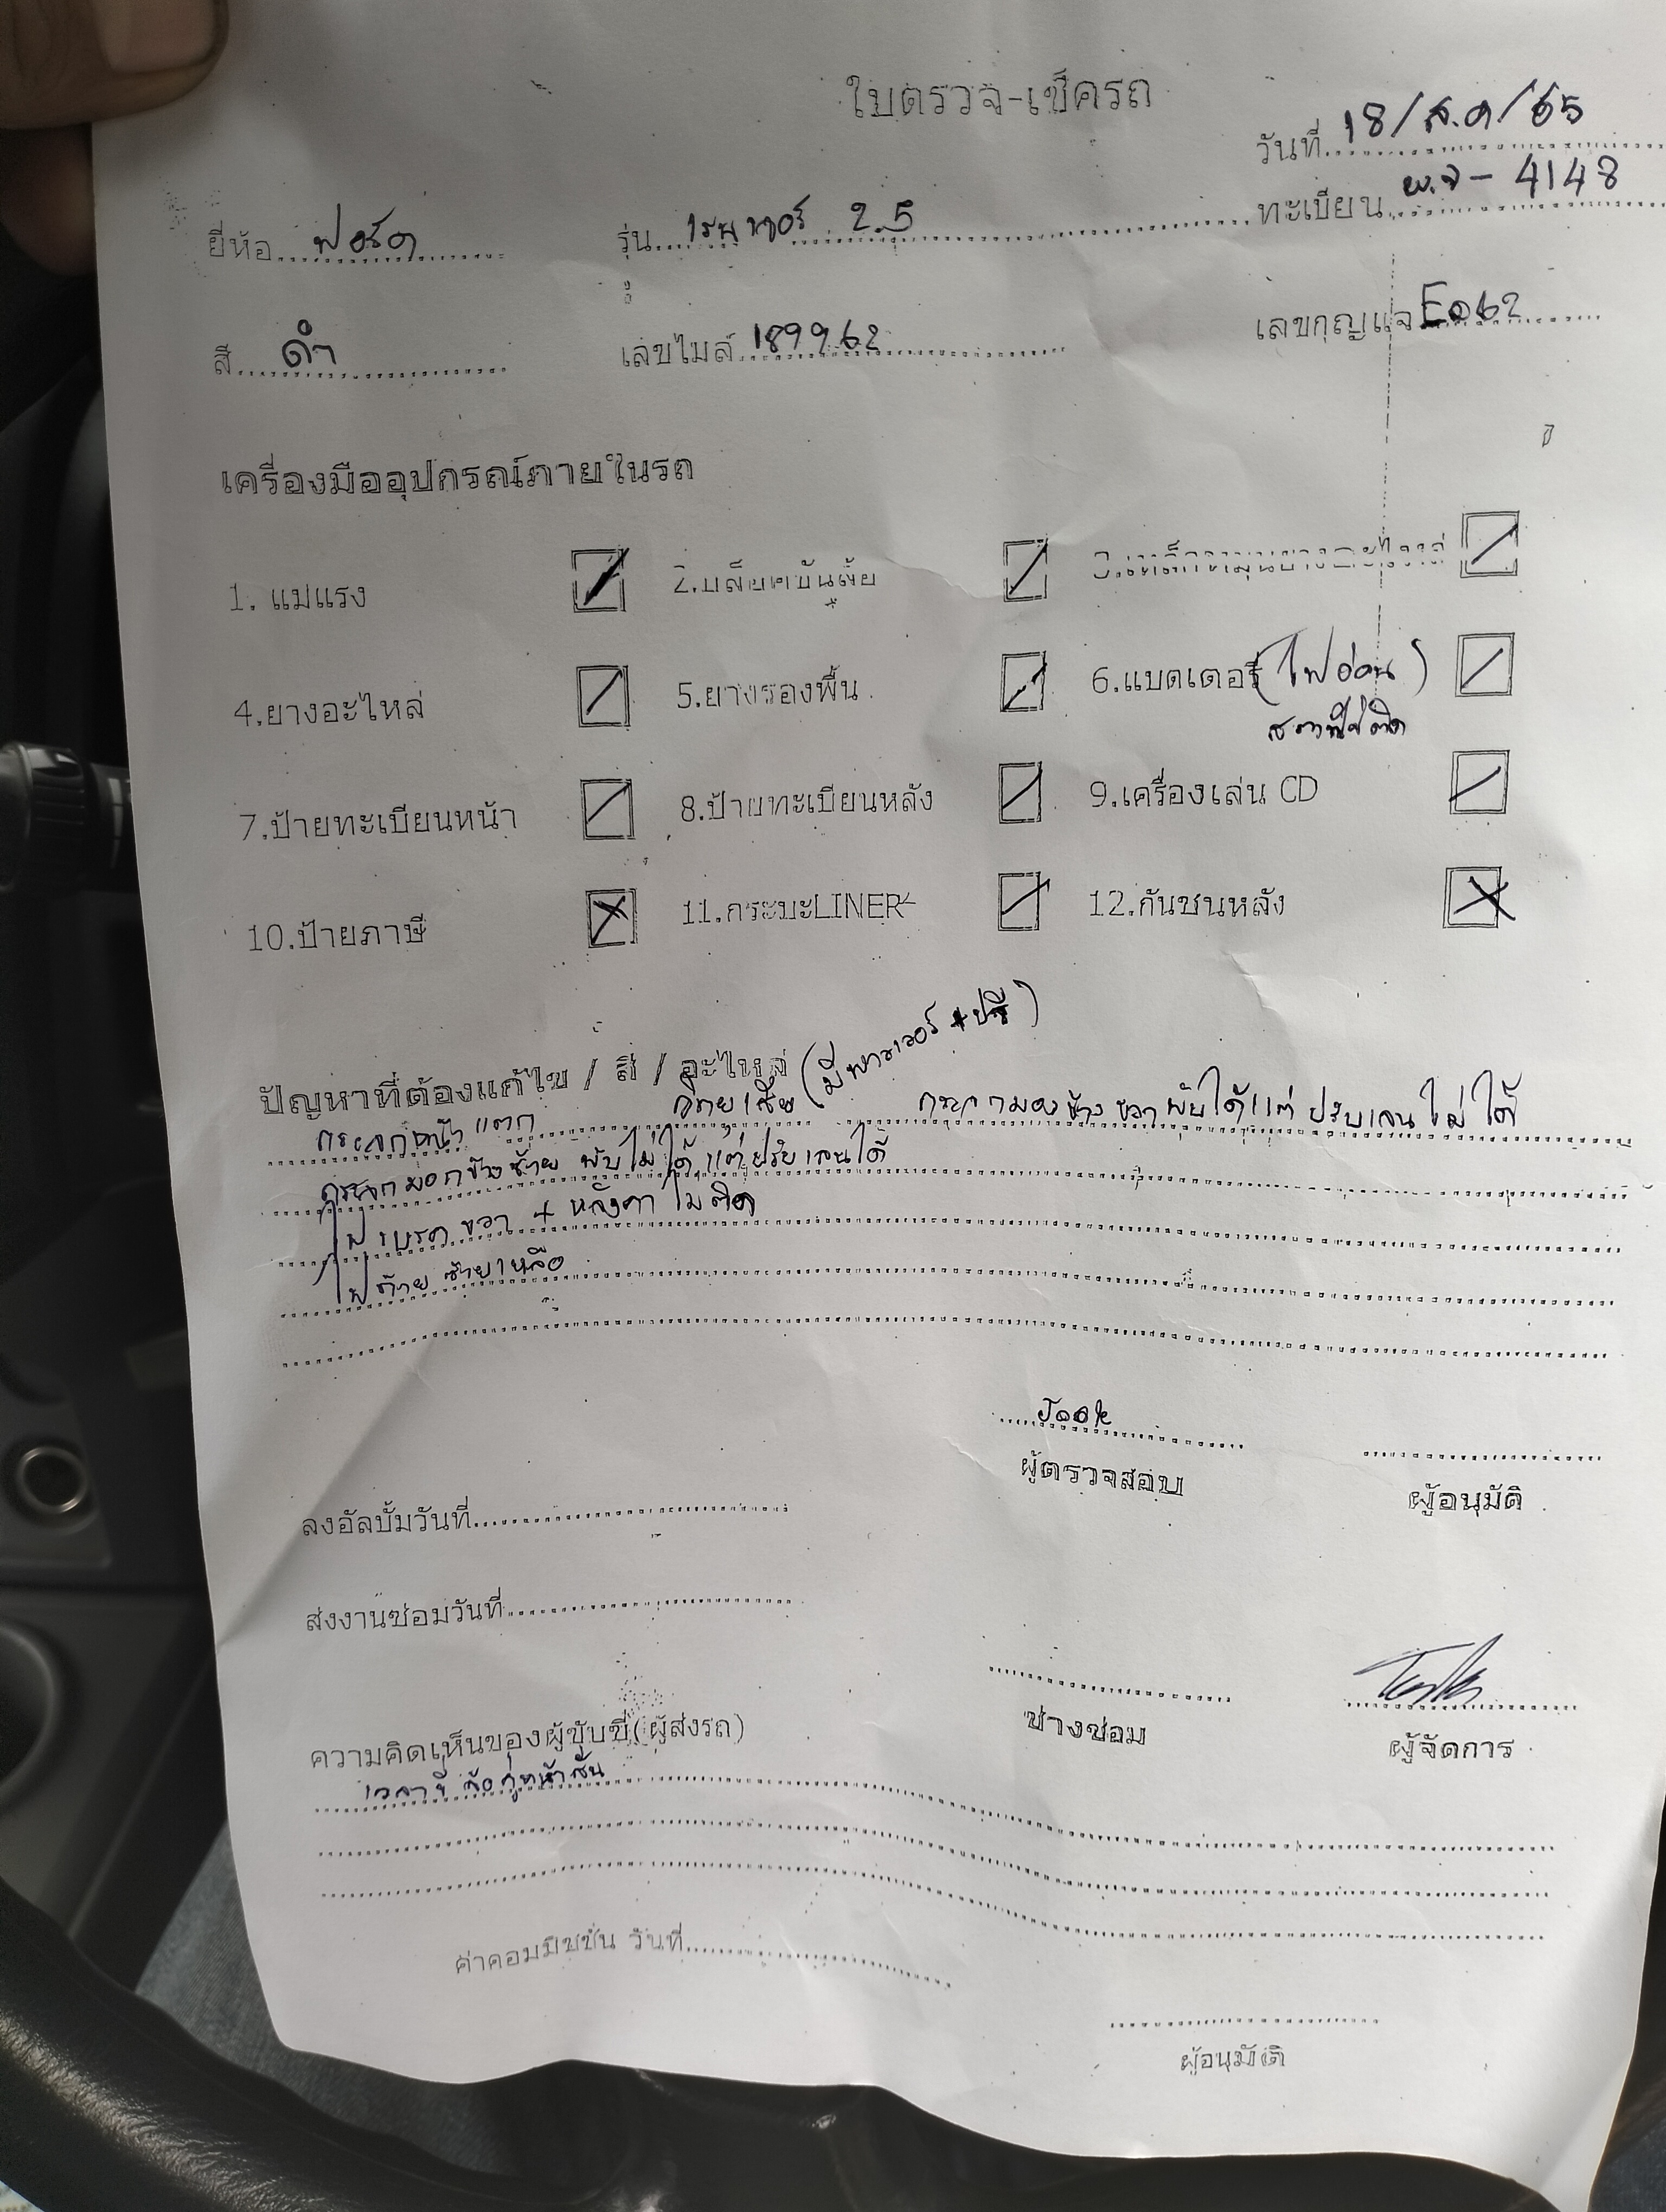 ใบตรวจ-เช็ครถ
วันที่ 18/ส.ค/65
ยี่ห้อ ฟอร์ด รุ่น เรนเจอร์ 2.5 ทะเบียน ผ.จ - 4148
สี ดำ เลขไมล์ 189962 เลขกุญแจ E062
เครื่องมืออุปกรณ์ภายในรถ
1. แม่แรง 2.บล็อคขันล้อ 3.เหล็กหมุนยางอะไหล่
4.ยางอะไหล่ 5.ยางรองพื้น 6.แบตเตอรี่ (ไฟอ่อน)
7.ป้ายทะเบียนหน้า 8.ป้ายทะเบียนหลัง 9.เครื่องเล่น CD
10.ป้ายภาษี 11.กระบะLINER 12.กันชนหลัง
ปัญหาที่ต้องแก้ไข / สี / อะไหล่
กระจกหน้าแตก กระจกมองข้างขวา พับได้แต่ ปรับเลนไม่ได้
กระจกมองข้างซ้าย พับไม่ได้ แต่ปรับเลนได้
ไฟเบรคขวา + หลังคา ไม่ติด
ไฟท้ายซ้ายเหลือ
Jook
ผู้ตรวจสอบ ผู้อนุมัติ
ลงอัลบั้มวันที่
ส่งงานซ่อมวันที่
ช่างซ่อม ผู้จัดการ
ความคิดเห็นของผู้ขับขี่(ผู้ส่งรถ)
เวลาขี่ ล้อคู่หน้าสั่น
ค่าคอมมิชชั่น วันที่
ผู้อนุมัติ